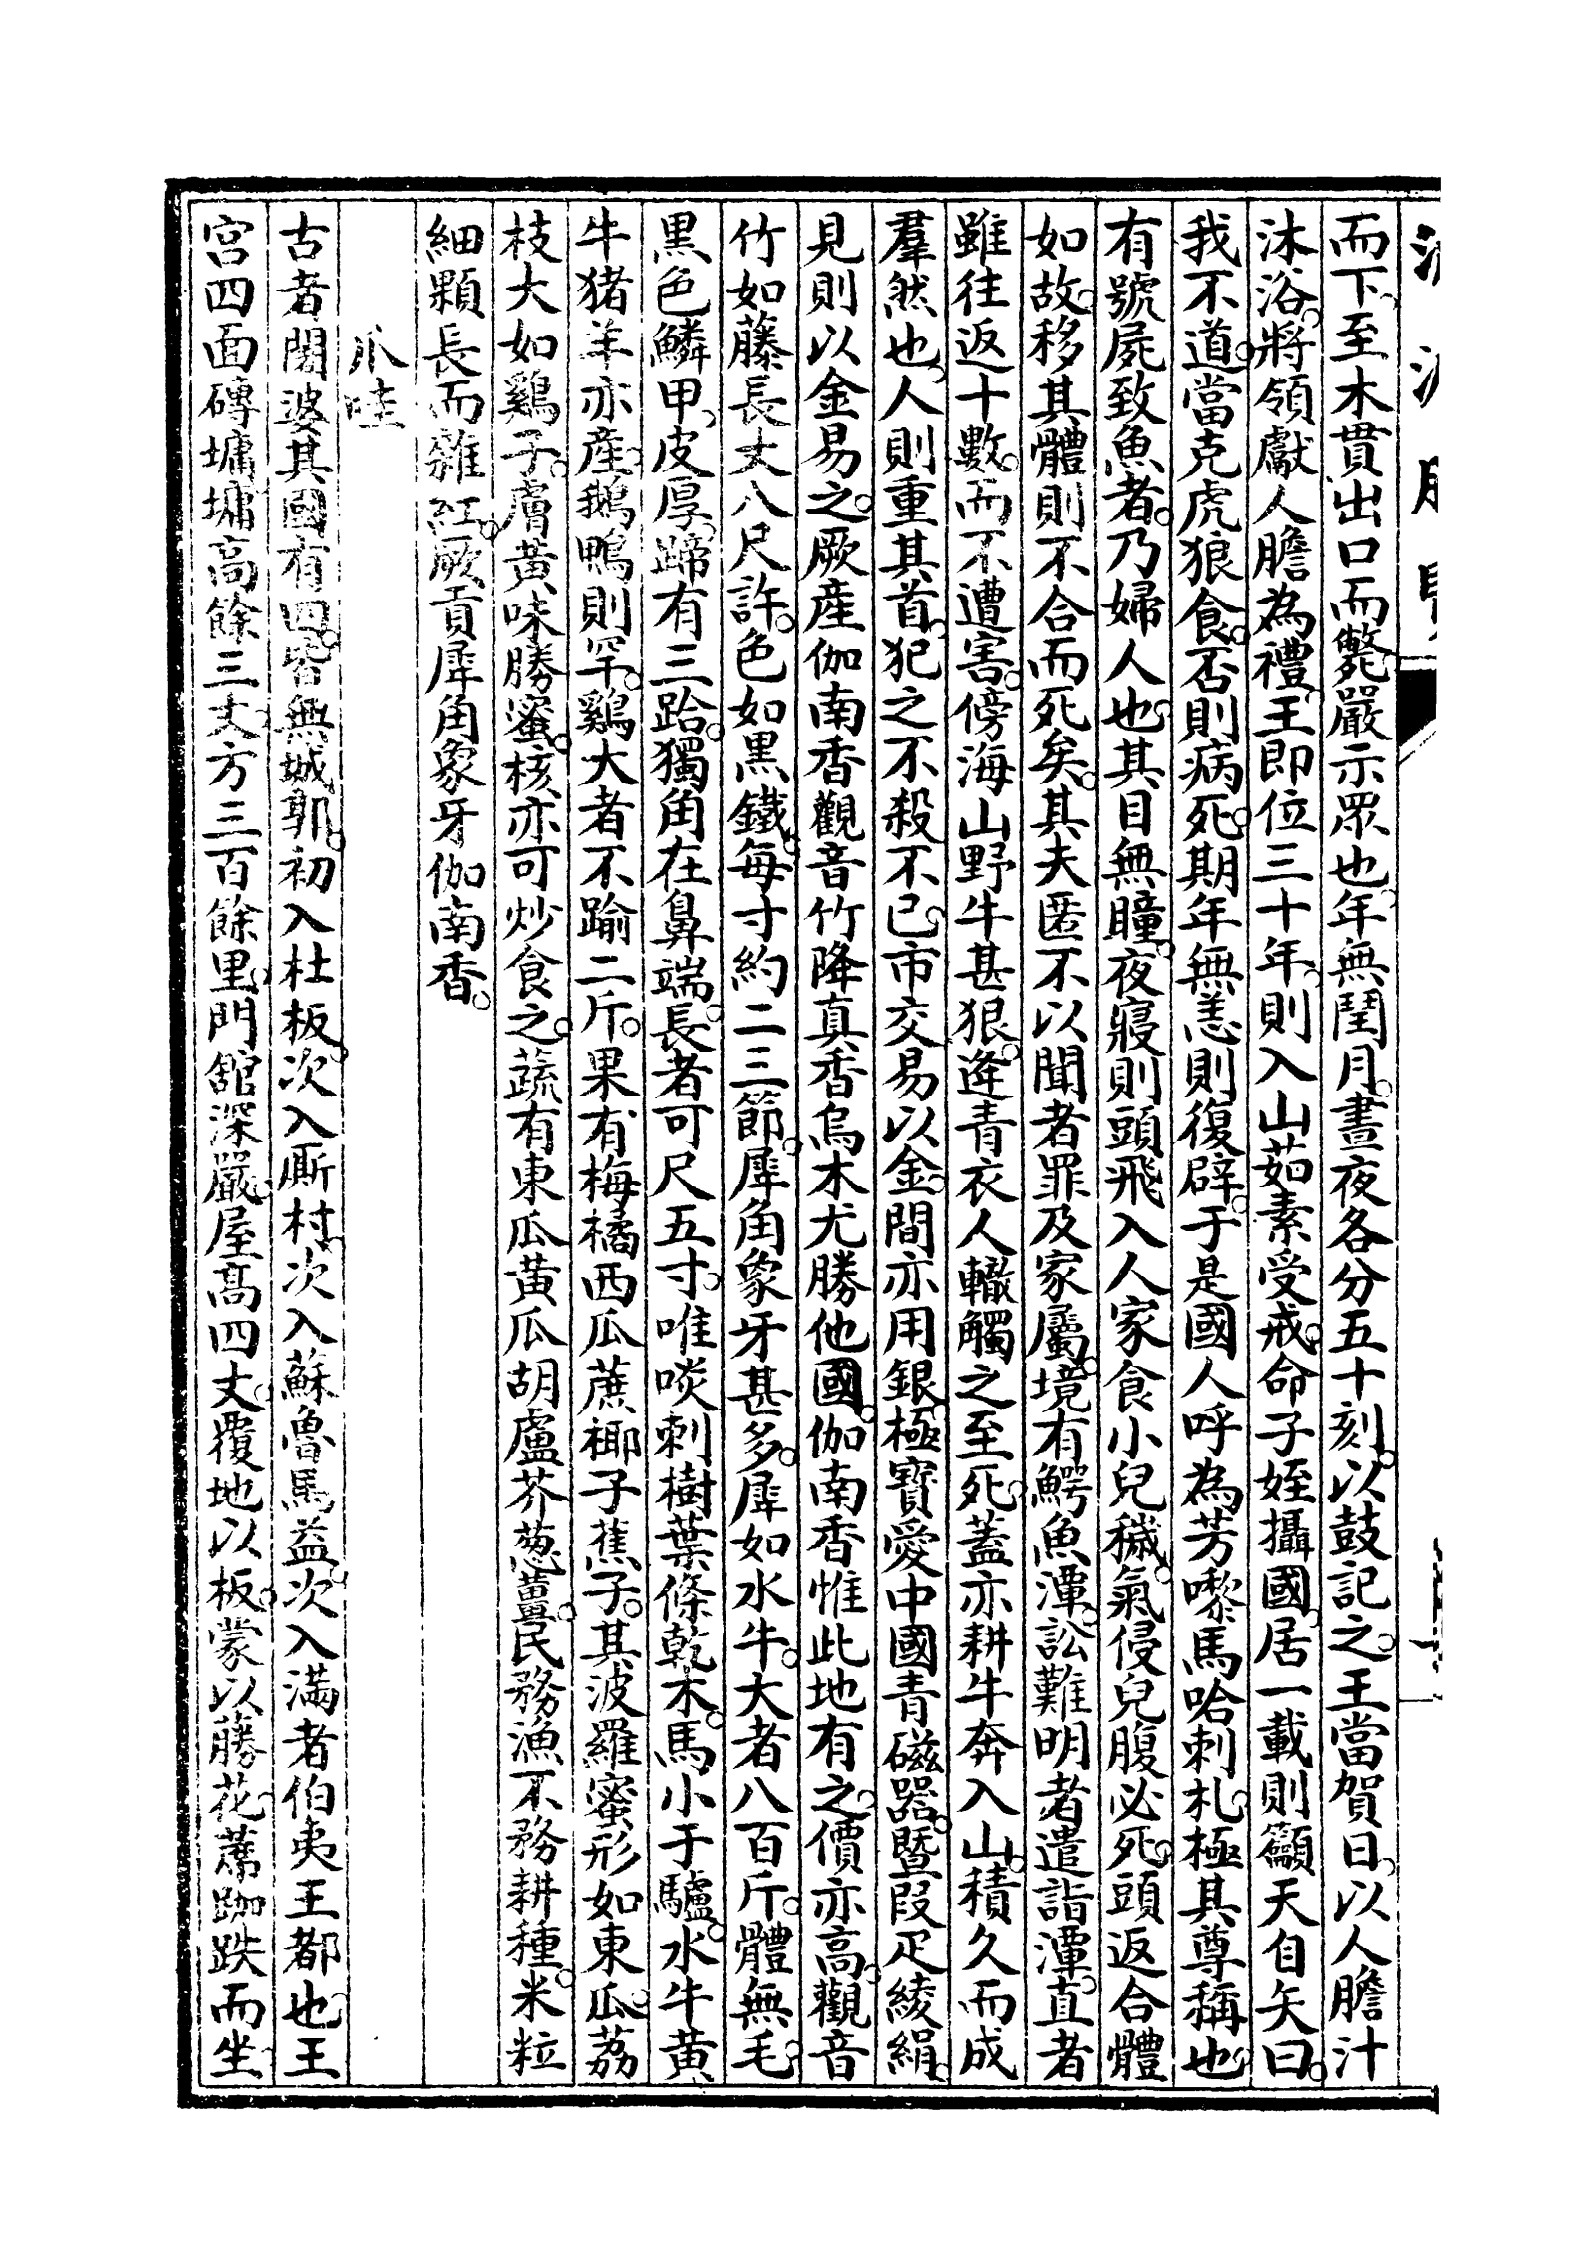 而下至木貫出口而斃嚴示眾也年無閏月晝夜各分五十刻以鼓記之王當賀日以人膽汁
沐浴將領獻人膽為禮王即位三十年則入山茹素受戒命子姪攝國居一載則籲天自矢曰
我不道當克虎狼食否則病死期年無恙則復辟于是國人呼為芳嚟馬哈剌札極其尊稱也
有號屍致魚者乃婦人也其目無瞳夜寢則頭飛入人家食小兒穢氣侵兒腹必死頭返合體
如故移其體則不合而死矣其夫匿不以聞者罪及家屬境有鰐魚潭訟難明者遣詣潭直者
雖往返十數而不遭害傍海山野牛甚狠逄青衣人轍觸之至死蓋亦耕牛奔入山積久而成
羣然也人則重其首犯之不殺不已市交易以金間亦用銀極寶愛中國青磁器暨叚疋綾絹
見則以金易之厥産伽南香觀音竹降真香烏木尤勝他國伽南香惟此地有之價亦高觀音
竹如藤長丈八尺許色如黒鐵每寸約二三節犀角象牙甚多犀如水牛大者八百斤體無毛
黒色鱗甲皮厚蹄有三跲獨角在鼻端長者可尺五寸唯啖刺樹葉條乾木馬小于驢水牛黄
牛猪羊亦産鵝鴨則罕鷄大者不踰二斤果有梅橘西瓜蔗椰子蕉子其波羅蜜形如東瓜荔
枝大如鷄子膚黄味勝蜜核亦可炒食之蔬有東瓜黄瓜胡盧芥葱薑民務漁不務耕種米粒
細顆長而雜紅厥貢犀角象牙伽南香
爪哇
古者闍婆其國有四皆無城郭初入杜板次入厮村次入蘇魯馬益次入滿者伯夷王都也王
宮四面磚墉墉高餘三丈方三百餘里門舘深嚴屋髙四丈覆地以板蒙以藤花蓆跏趺而坐